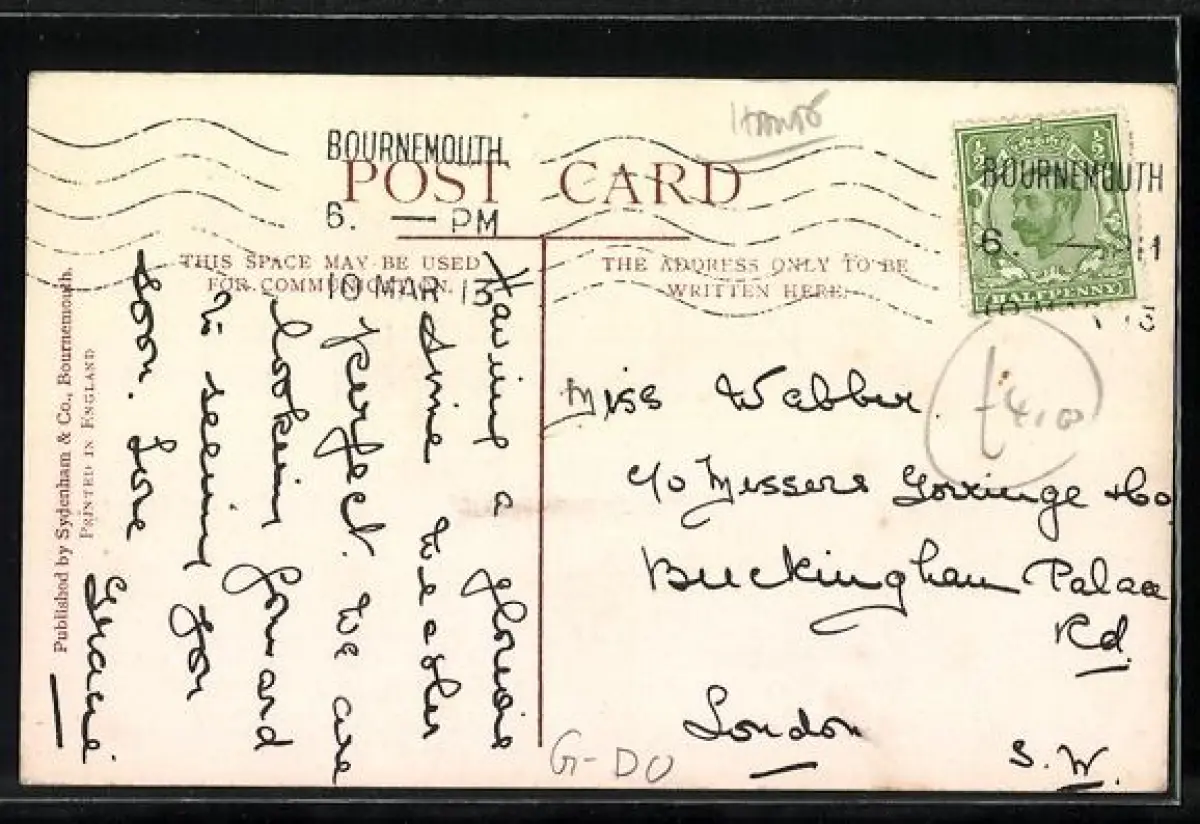 HANTS
BOURNEMOUTH
6. — PM
10 MAR 13
BOURNEMOUTH
6. — PM
POST CARD
THIS SPACE MAY BE USED
FOR COMMUNICATION.
THE ADDRESS ONLY TO BE
WRITTEN HERE.
½
½
HALFPENNY
Having a glorious
time weather
perfect. We are
looking forward
to seeing you
soon. Love
Gracie
Miss Webber.
c/o Messers Gorringe & Co
Buckingham Palace
Rd.
London
S.W.
£4.00
G-DO
Published by Sydenham & Co., Bournemouth.
PRINTED IN ENGLAND